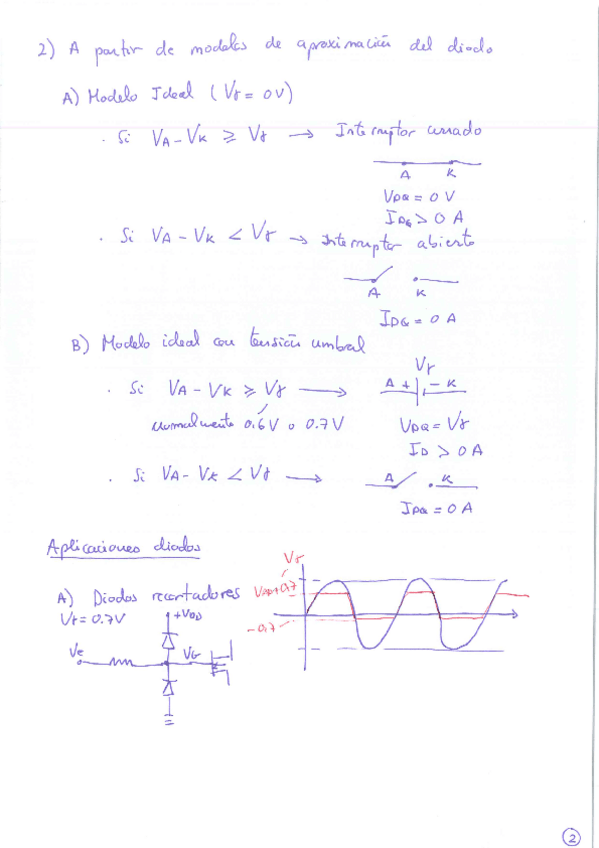 2) A partir de modelos de aproximación del diodo
A) Modelo Ideal (Vγ = 0V)
. Si VA - VK ≥ Vγ → Interruptor cerrado
A K
VDQ = 0 V
IDQ > 0 A
. Si VA - VK < Vγ → Interruptor abierto
A K
IDQ = 0 A
B) Modelo ideal con tensión umbral
Vγ
. Si VA - VK ≥ Vγ → A + - K
normalmente 0.6V o 0.7V
VDQ = Vγ
ID > 0 A
. Si VA - VK < Vγ → A K
IDQ = 0 A
Aplicaciones diodos
A) Diodos recortadores
Vγ = 0.7V
+VDD
Ve
VG
Vγ
VDD+0,7
-0,7
2